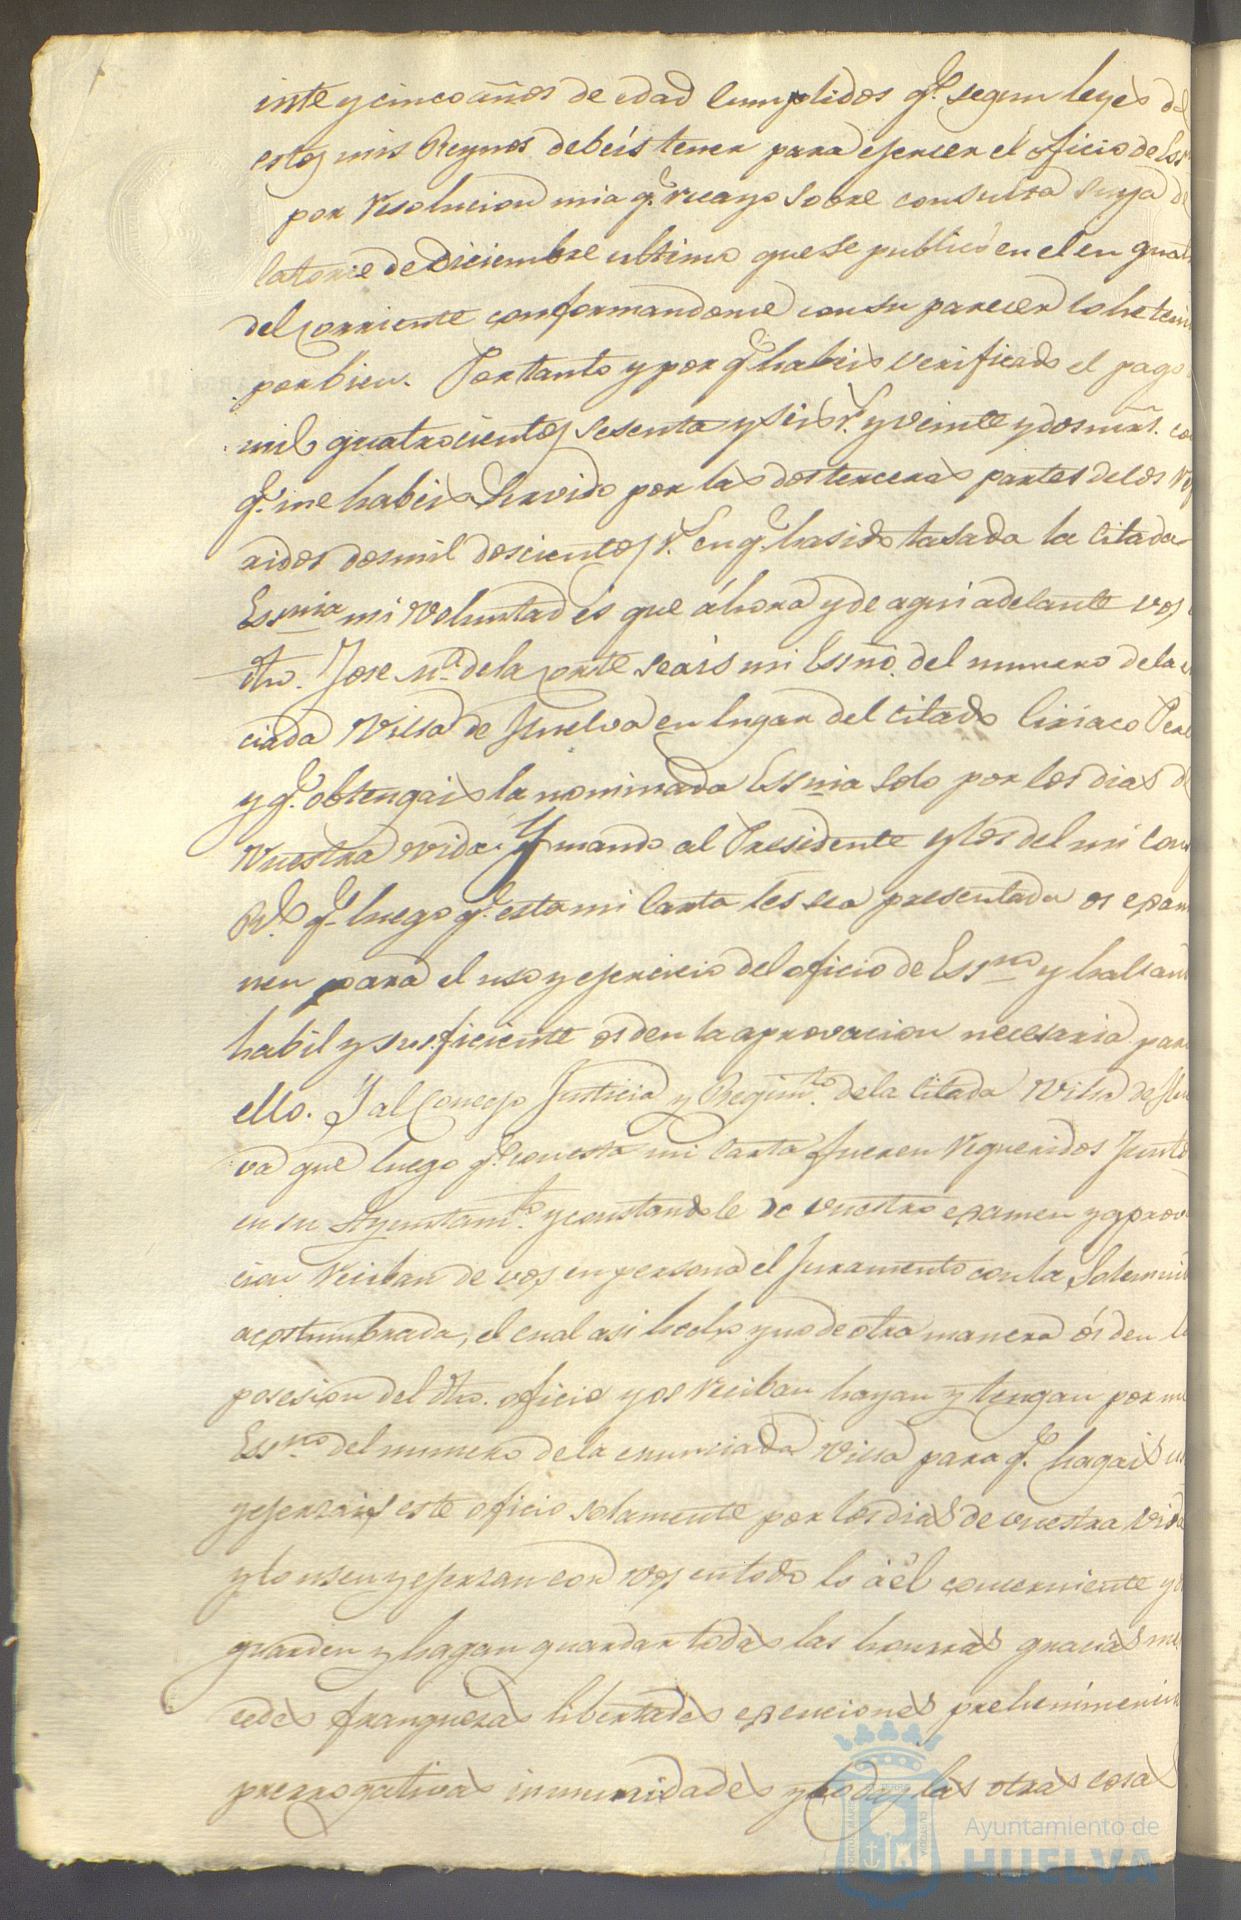 inte y cinco años de edad cumplidos qe. segun leyes de
estos mis Reynos debeis tener para ejercer el oficio de Ess
por resolucion mia qe. recayo sobre consulta suya de
catorce de Diciembre ultimo que se publicó en el en qua
del corriente conformandome con su parecer lo he teni
por bien. Por tanto y por qe. habeis verificado el pago
mil quatrocientos sesenta y seis rs. y veinte y dos mrs. co
qe. me habeis servido por las dos terceras partes de los re
ridos dos mil doscientos rs. en qe. ha sido tasada la citada
Essnia mi voluntad es que ahora y de aqui adelante vos
dho. Jose Ma. de la Corte seais mi Essno. del numero de la
ciada Villa de Huelva en lugar del citado Ciriaco Pere
y qe. obtengais la nominada Essnia solo por los dias de
vuestra vida. Y mando al Presidente y los del mi Con
Rl. qe. luego qe. esta mi Carta les sea presentada os exam
nen para el uso y ejercicio del oficio de Essno y halland
habil y suficiente os den la aprovacion necesaria para
ello. Y al Concejo Justicia y Regimto. de la citada Villa de Hu
va que luego qe. con esta mi Carta fueren requeridos Junto
en su Ayuntamto. y constandole de vuestro examen y aprov
cion reciban de vos en persona el Juramento con la Solemni
acostumbrada, el cual asi hecho y no de otra manera ós den l
posesion del dho. oficio y os reciban hayan y tengan por mi
Essno del numero de la enunciada Villa para qe. hagais u
y ejerzais este oficio solamente por los dias de vuestra vida
y lo usen y ejerzan con vos en todo lo á él concerniente y
guarden y hagan guardar todas las honrras gracias me
cedes franquezas libertades esenciones prehemimenci
prerrogativas inmunidades y todas las otras cosas
Ayuntamiento de
HUELVA